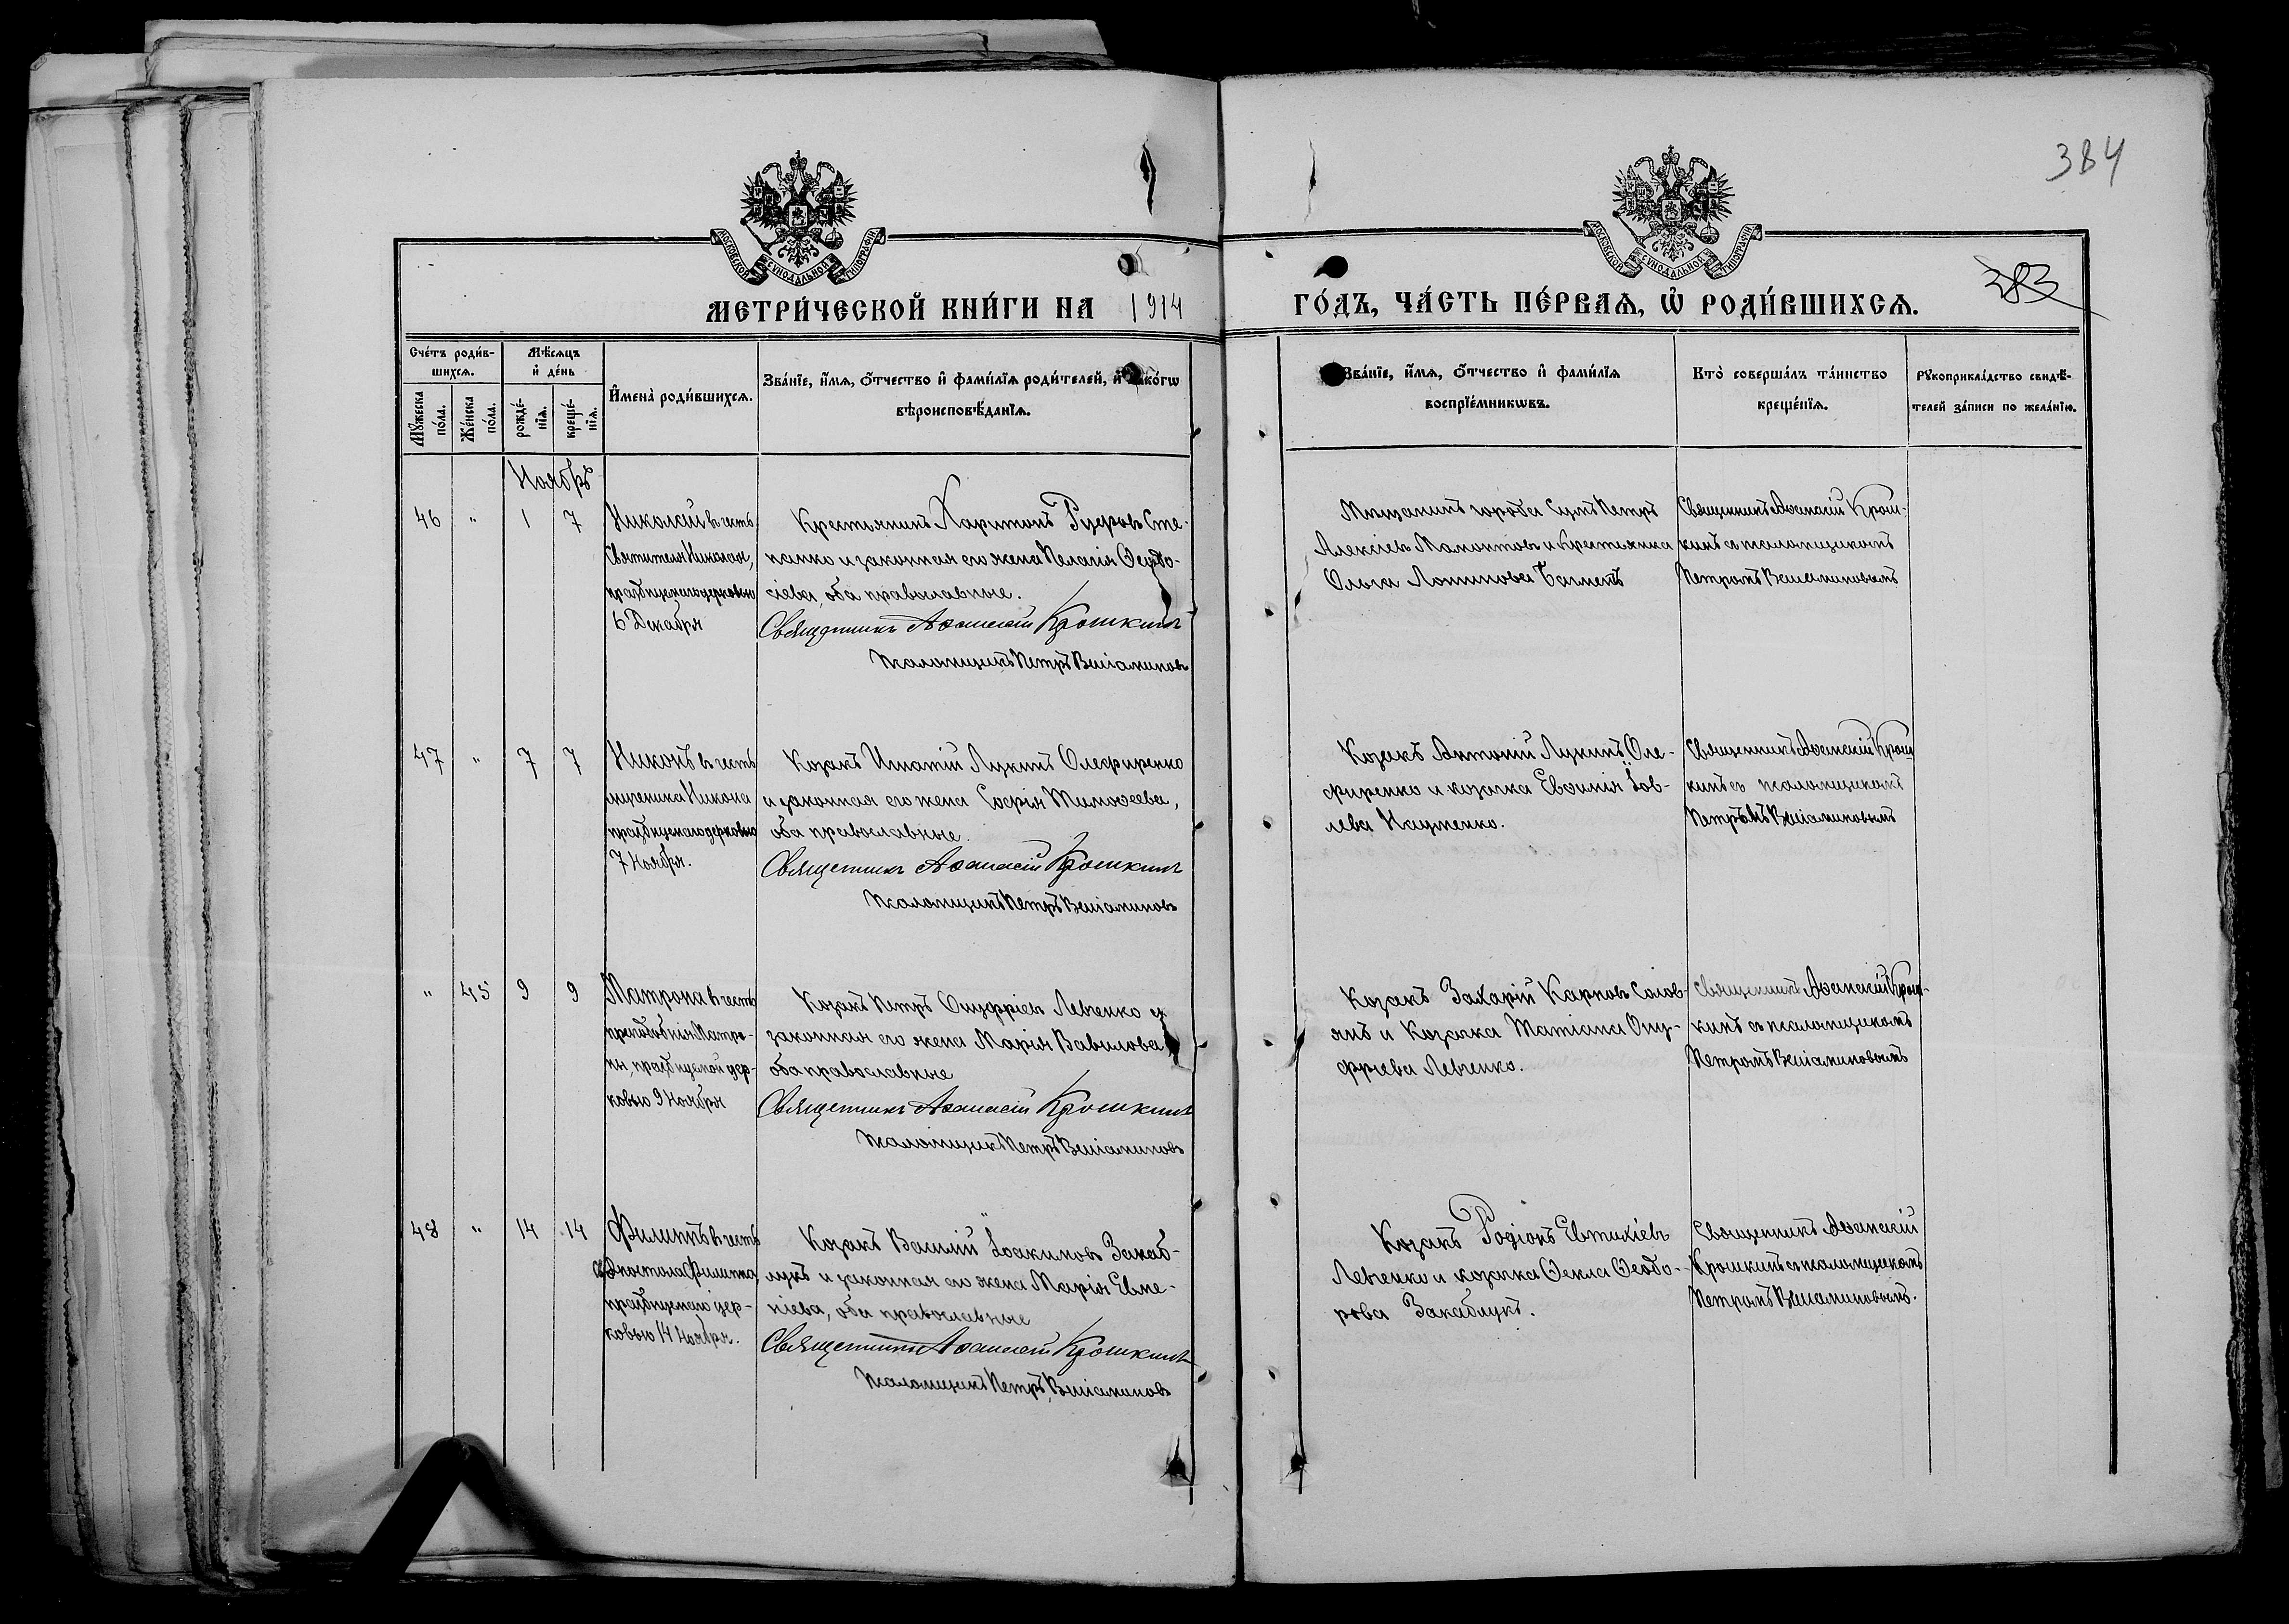 384
МОСКОВСКОЙ СѴНОДАЛЬНОЙ ТИПОГРАФІИ
МОСКОВСКОЙ СѴНОДАЛЬНОЙ ТИПОГРАФІИ
МЕТРИ́ЧЕСКОЙ КНИ́ГИ НА 1914
ГО́ДЪ, ЧА́СТЬ ПЕ́РВАѦ, Ѡ҆ РОДИ́ВШИХСѦ.
383
Сче́тъ роди́в-
шихсѧ.
Мꙋ́жеска
по́ла.
Же́нска
по́ла.
Мѣ́сѧцъ
и҆ де́нь
рожде́-
нїѧ.
креще́-
нїѧ.
И҆мена̀ роди́вшихсѧ.
Зва́нїе, и҆́мѧ, ѻ҆́тчество и҆ фами́лїѧ роди́телей, и҆ како́гѡ
вѣроисповѣ́данїѧ.
Зва́нїе, и҆́мѧ, ѻ҆́тчество и҆ фами́лїѧ
воспрїе́мникѡвъ.
Кто̀ соверша́лъ та́инство
креще́нїѧ.
Рꙋкоприкла́дство свидѣ́-
телей за́писи по жела́нїю.
Ноябрь
46 " 1 7
Николай въ честь
Святителя Николая,
празднуемаго церковью
6 Декабря
Крестьянинъ Харитонъ Сте-
панко и законная его жена Пелагія Ѳеодо-
сіева, оба православные.
Священникъ Аѳанасій Крошкинъ
Псаломщикъ Петръ Веніаминовъ
Мѣщанинъ города Сумъ Петръ
Алексѣевъ Мамонтовъ и крестьянка
Ольга
Священникъ Аѳанасій Крош-
кинъ съ псаломщикомъ
Петромъ Веніаминовымъ
47 " 7 7
Никонъ въ честь
мученика Никона
празднуемаго церковью
7 Ноября.
Козакъ Игнатій Лукинъ Олефиренко
и законная его жена Софія Тимоѳеева,
оба православные.
Священникъ Аѳанасій Крошкинъ
Псаломщикъ Петръ Веніаминовъ
Козакъ Антоній Лукинъ Оле-
фиренко и козачка Евѳимія Іов-
лева Науменко.
Священникъ Аѳанасій Крош-
кинъ съ псаломщикомъ
Петромъ Веніаминовымъ
" 45 9 9
Матрона въ честь
преподобныя Матро-
ны, празднуемой цер-
ковью 9 Ноября
Козакъ Петръ Онуфріевъ Левченко и
законная его жена Марія Вавилова
оба православные
Священникъ Аѳанасій Крошкинъ
Псаломщикъ Петръ Веніаминовъ
Козакъ Захарій Карповъ Солов-
янъ и Козачка Татіана Ону-
фріева Левченко.
Священникъ Аѳанасій Крош-
кинъ съ псаломщикомъ
Петромъ Веніаминовымъ
48 " 14 14
Филиппъ въ честь
Апостола Филиппа,
празднуемаго цер-
ковью 14 Ноября.
Козакъ Василій Іоакимовъ Закаб-
лукъ и законная его жена Марія Евме-
ніева, оба православные
Священникъ Аѳанасій Крошкинъ
Псаломщикъ Петръ Веніаминовъ
Козакъ Родіонъ Евтихіевъ
Левченко и козачка Ѳекла Ѳеодо-
рова Закаблукъ.
Священникъ Аѳанасій
Крошкинъ съ псаломщикомъ
Петромъ Веніаминовымъ.